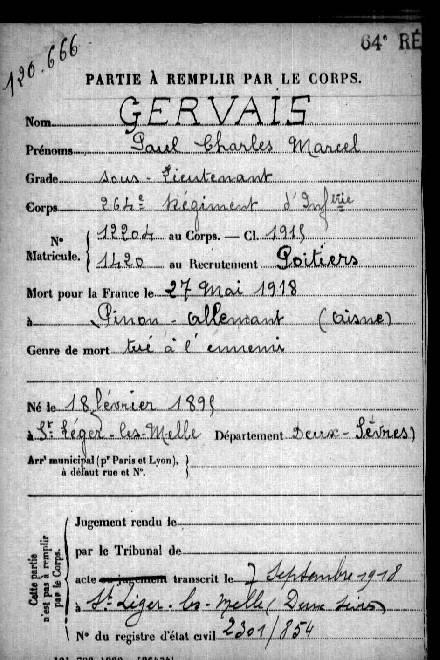 120.666
64e RÉ
PARTIE À REMPLIR PAR LE CORPS.
Nom GERVAIS
Prénoms Paul Charles Marcel
Grade Sous-Lieutenant
Corps 264e Régiment d'Infrie
No Matricule. { 12204 au Corps. — Cl. 1915
1420 au Recrutement Poitiers
Mort pour la France le 27 Mai 1918
à Pinon-Allemant (Aisne)
Genre de mort tué à l'ennemi
Né le 18 février 1895
à St Léger-les-Melle Département Deux-Sèvres)
Arrt municipal (pr Paris et Lyon), à défaut rue et No. }
Cette partie n'est pas à remplir par le Corps. {
Jugement rendu le
par le Tribunal de
acte ou jugement transcrit le 7 Septembre 1918
à St Léger-les-Melle (Deux Sèvres)
No du registre d'état civil 2301/854